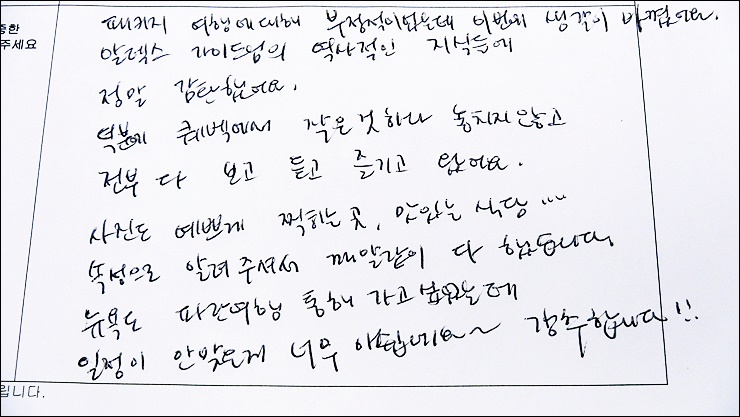 중한
주세요
패키지 여행에대해 부정적이었는데 이번의 생각이 바꼈어요.
알렉스 가이드님의 역사적인 지식들에
정말 감탄했어요.
덕분에 퀘벡에서 작은것하나 놓치지않고
전부 다 보고 듣고 즐기고 왔어요.
사진도 예쁘게 찍히는곳, 맛있는 식당 …
속성으로 알려주셔서 깨알같이 다 했습니다.
뉴욕도 파란여행 통해 가고싶었는데
일정이 안맞은게 너무 아쉽네요~ 강추합니다!!
립니다.